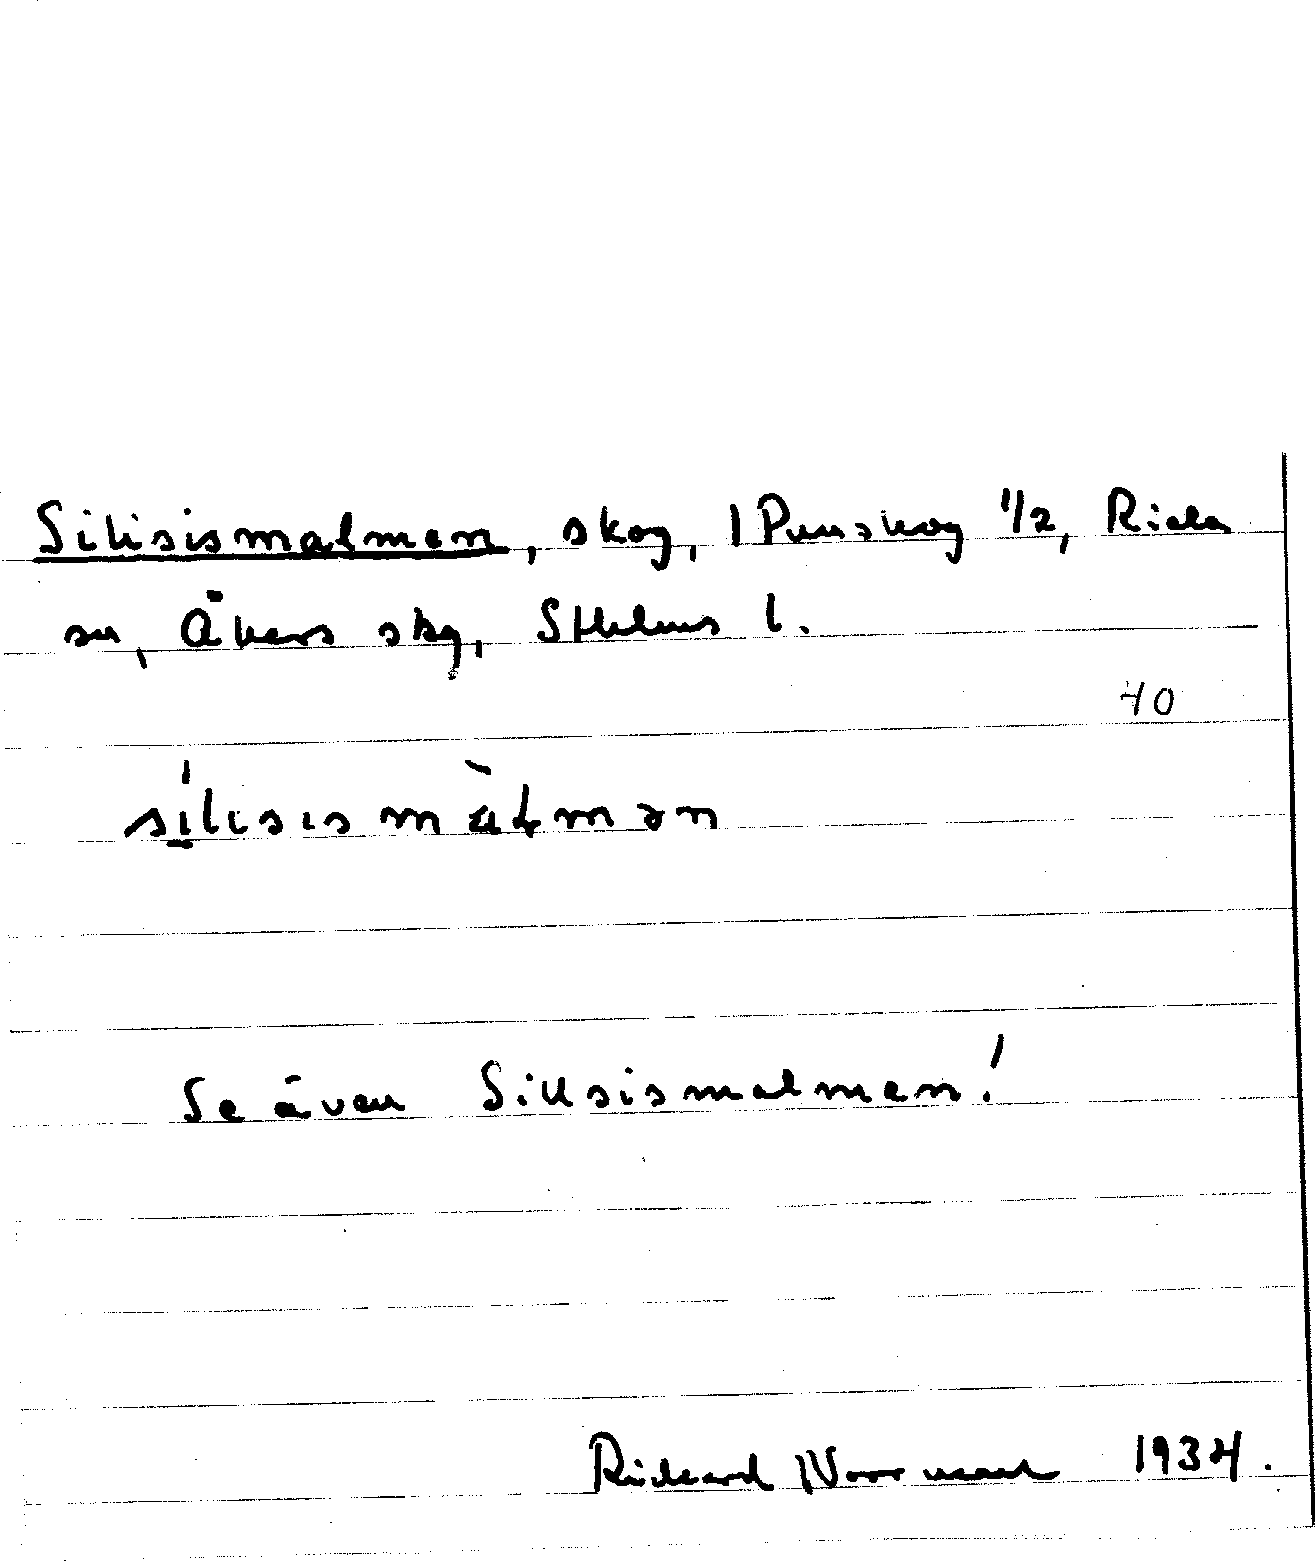 Silisismalmen, skog, 1 Punskog 1/2, Riala
sn, Åkers skg, Sthlms l.
40
sílisismàłmən
Se även Sillsismalmen!
Rickard Norrman 1934.